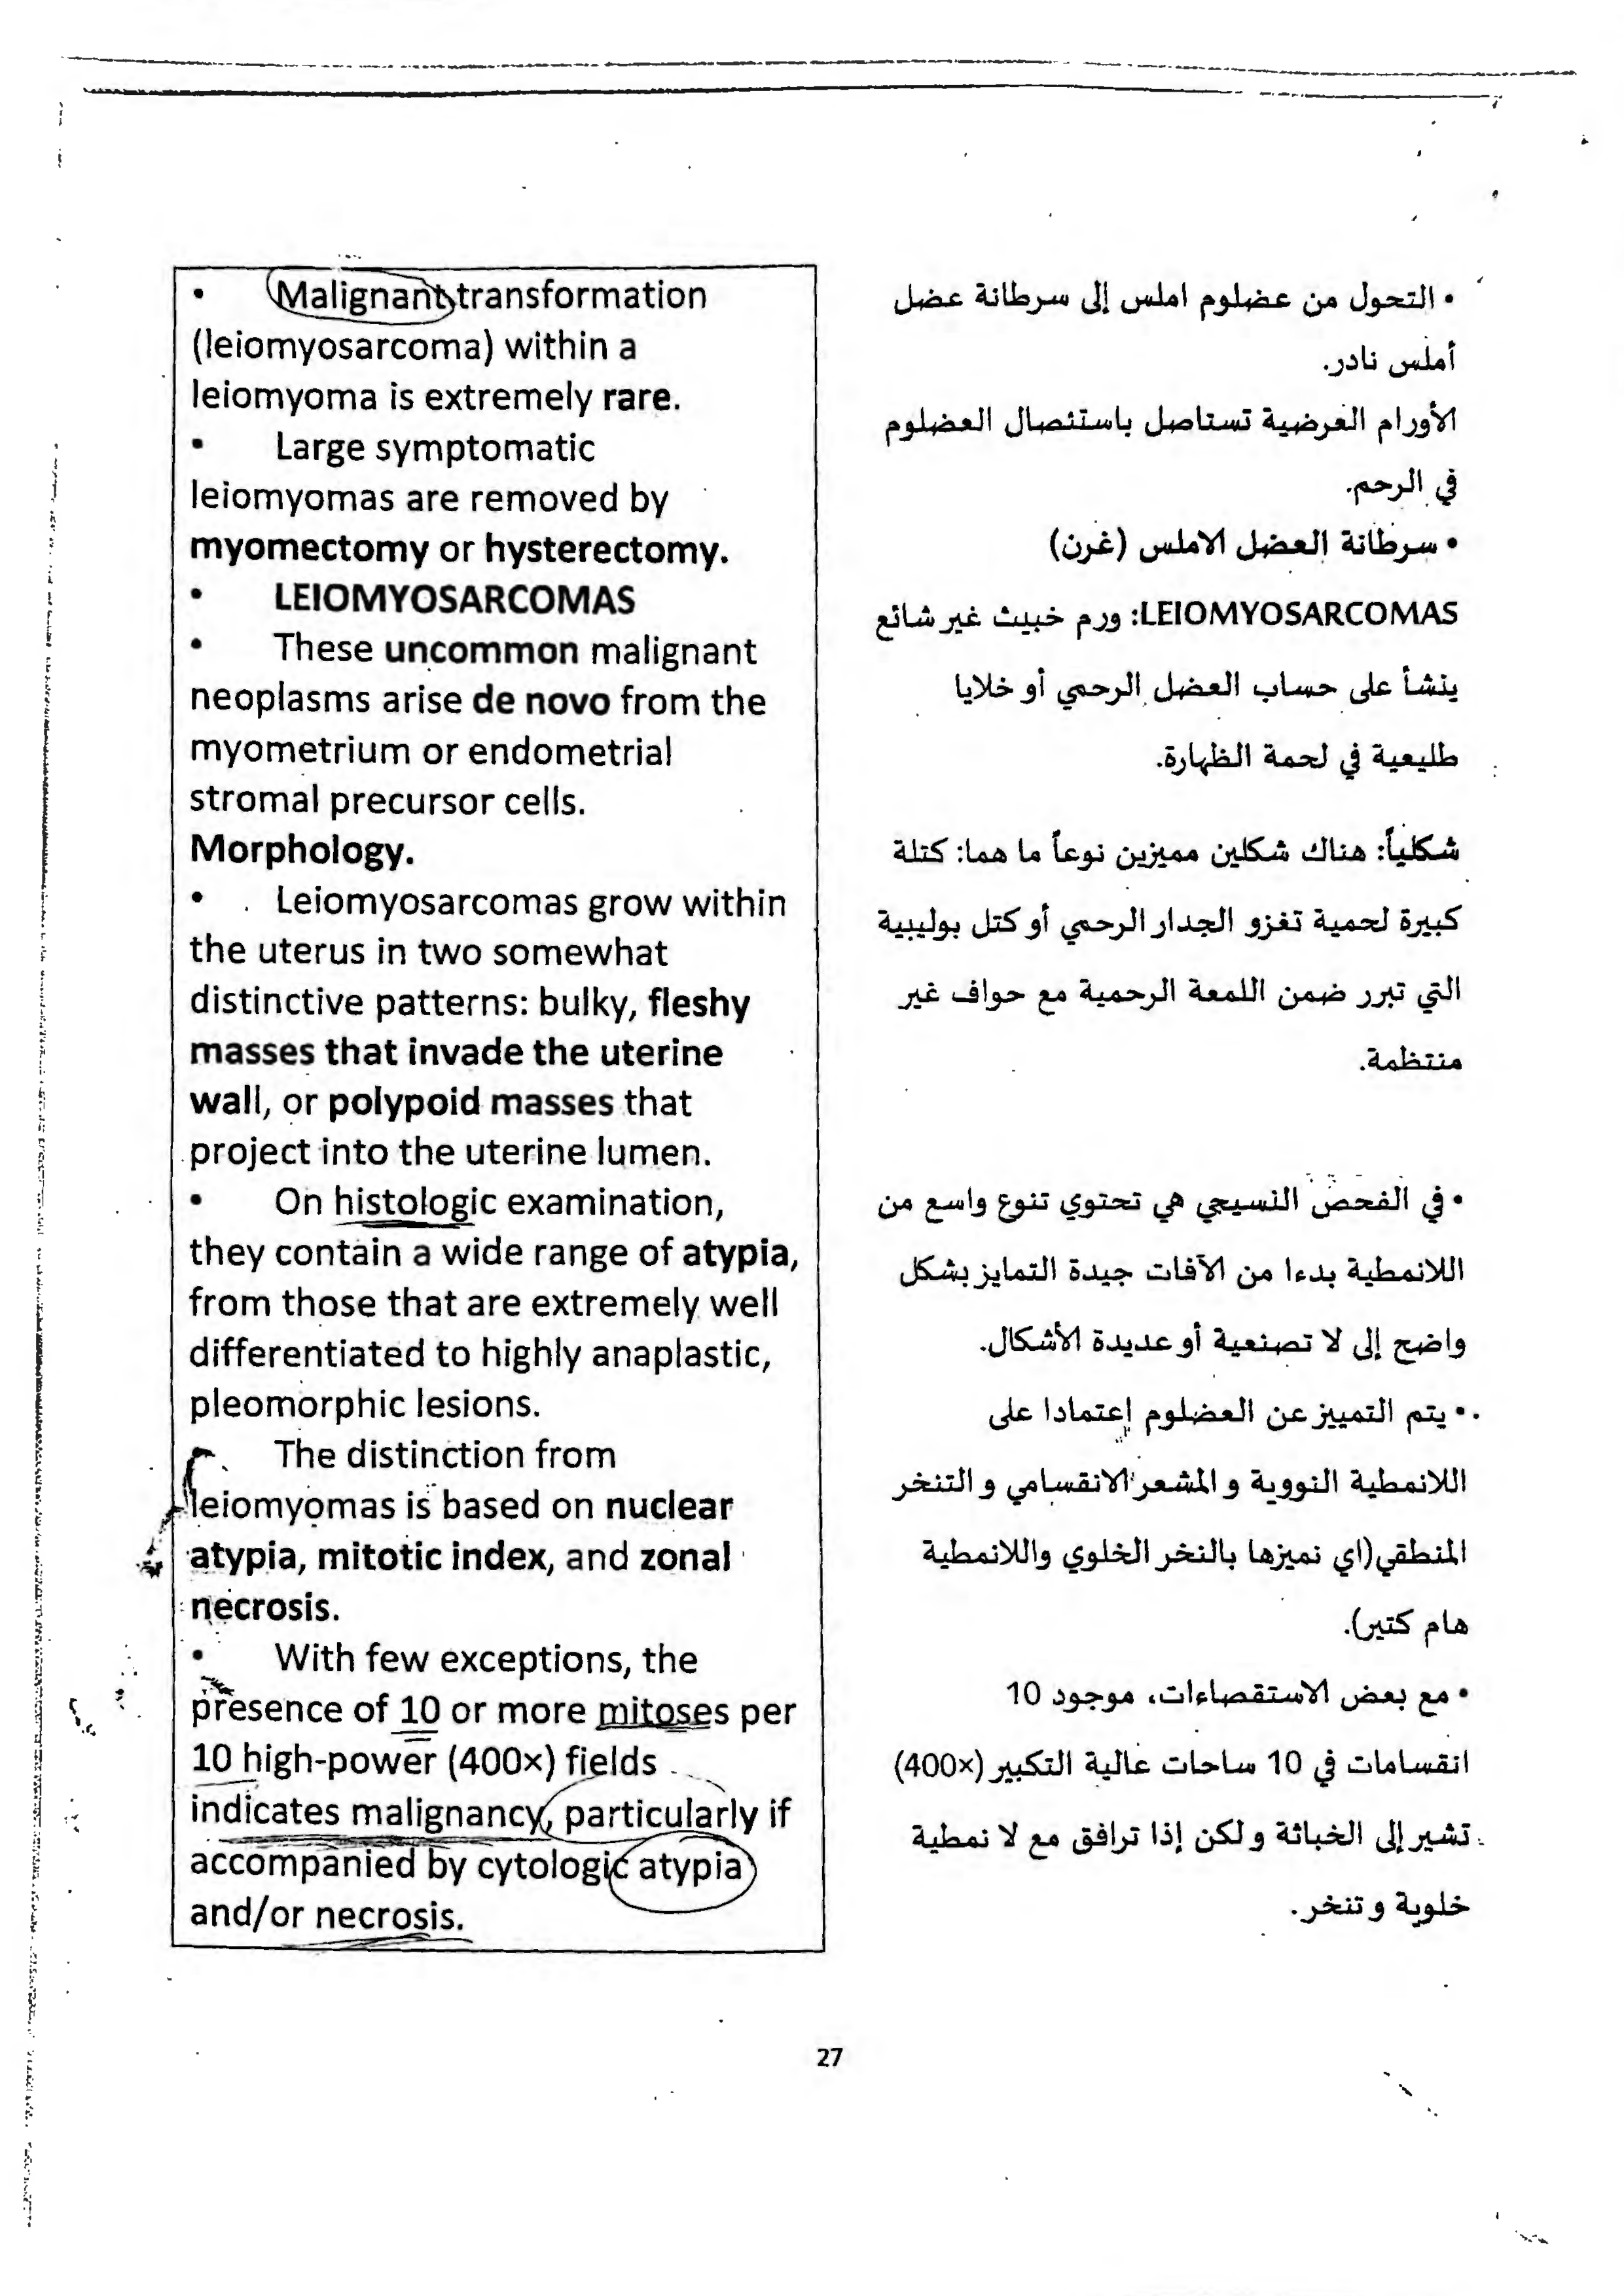 • Malignant transformation
(leiomyosarcoma) within a
leiomyoma is extremely rare.
• Large symptomatic
leiomyomas are removed by
myomectomy or hysterectomy.
• LEIOMYOSARCOMAS
• These uncommon malignant
neoplasms arise de novo from the
myometrium or endometrial
stromal precursor cells.
Morphology.
• Leiomyosarcomas grow within
the uterus in two somewhat
distinctive patterns: bulky, fleshy
masses that invade the uterine
wall, or polypoid masses that
project into the uterine lumen.
• On histologic examination,
they contain a wide range of atypia,
from those that are extremely well
differentiated to highly anaplastic,
pleomorphic lesions.
The distinction from
leiomyomas is based on nuclear
atypia, mitotic index, and zonal
necrosis.
• With few exceptions, the
presence of 10 or more mitoses per
10 high-power (400×) fields
indicates malignancy, particularly if
accompanied by cytologic atypia
and/or necrosis.
• التحول من عضلوم املس إلى سرطانة عضل
أملس نادر.
الأورام العرضية تستاصل باستئصال العضلوم
في الرحم.
• سرطانة العضل الاملس (غرن)
LEIOMYOSARCOMAS: ورم خبيث غير شائع
ينشأ على حساب العضل الرحمي أو خلايا
طليعية في لحمة الظهارة.
شكلياً: هناك شكلين مميزين نوعاً ما هما: كتلة
كبيرة لحمية تغزو الجدار الرحمي أو كتل بوليبية
التي تبرر ضمن اللمعة الرحمية مع حواف غير
منتظمة.
• في الفحص النسيجي هي تحتوي تنوع واسع من
اللانمطية بدءا من الآفات جيدة التمايز بشكل
واضح إلى لا تصنعية أو عديدة الأشكال.
• يتم التمييز عن العضلوم إعتمادا على
اللانمطية النووية و المشعر الانقسامي و التنخر
المنطقي(اي نميزها بالنخر الخلوي واللانمطية
هام كتير).
• مع بعض الاستقصاءات، موجود 10
انقسامات في 10 ساحات عالية التكبير (400×)
تشير إلى الخباثة و لكن إذا ترافق مع لا نمطية
خلوية و تنخر.
27